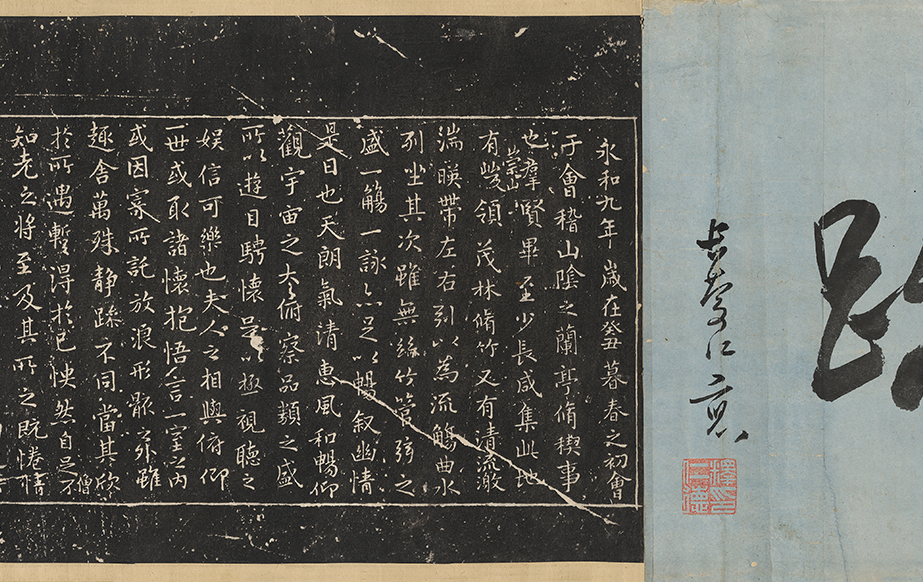 永和九年歲在癸丑暮春之初會
于會稽山陰之蘭亭脩稧事
也羣賢畢至少長咸集此地
有崇山峻領茂林脩竹又有清流激
湍暎帶左右引以為流觴曲水
列坐其次雖無絲竹管弦之
盛一觴一詠亦足以暢叙幽情
是日也天朗氣清惠風和暢仰
觀宇宙之大俯察品類之盛
所以遊目騁懷足以極視聽之
娱信可樂也夫人之相與俯仰
一世或取諸懷抱悟言一室之內
或因寄所託放浪形骸之外雖
趣舍萬殊靜躁不同當其欣
於所遇蹔得於己怏然自足不
僧
知老之將至及其所之既惓情